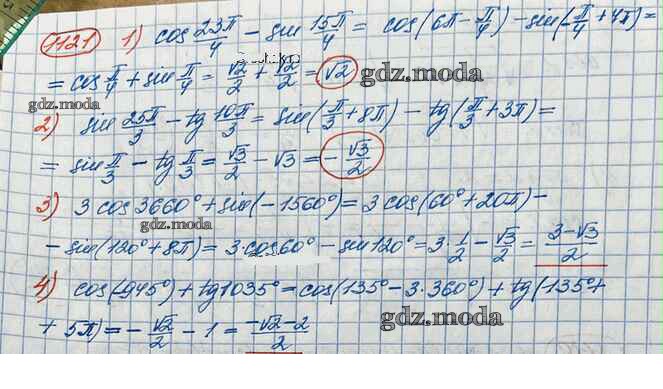 1121 1) cos 23π/4 − sin 15π/4 = cos(6π − π/4) − sin(−π/4 + 4π) =
= cos π/4 + sin π/4 = √2/2 + √2/2 = √2 gdz.moda
gdz.moda
2) sin 25π/3 − tg 10π/3 = sin(π/3 + 8π) − tg(π/3 + 3π) =
= sin π/3 − tg π/3 = √3/2 − √3 = −√3/2
3) 3cos3660° + sin(−1560°) = 3cos(60° + 20π) −
gdz.moda
− sin(120° + 8π) = 3·cos60° − sin120° = 3·1/2 − √3/2 = (3−√3)/2
4) cos(−945°) + tg1035° = cos(135° − 3·360°) + tg(−135° +
+ 5π) = −√2/2 − 1 = (−√2−2)/2 gdz.moda
gdz.moda